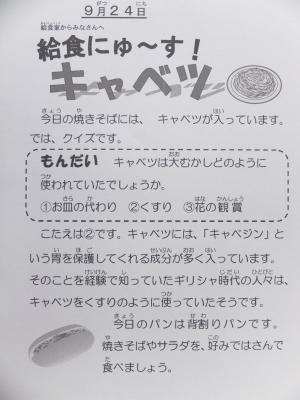 9月24日
給食室からみなさんへ
給食にゅ〜す!
キャベツ
今日の焼きそばには、キャベツが入っています。
では、クイズです。
もんだい キャベツは大むかしどのように
使われていたでしょうか。
①お皿の代わり ②くすり ③花の観賞
こたえは②です。キャベツには、「キャベジン」と
いう胃を保護してくれる成分が多く入っています。
そのことを経験で知っていたギリシャ時代の人々は、
キャベツをくすりのように使っていたそうです。
今日のパンは背割りパンです。
焼きそばやサラダを、好みではさんで
食べましょう。